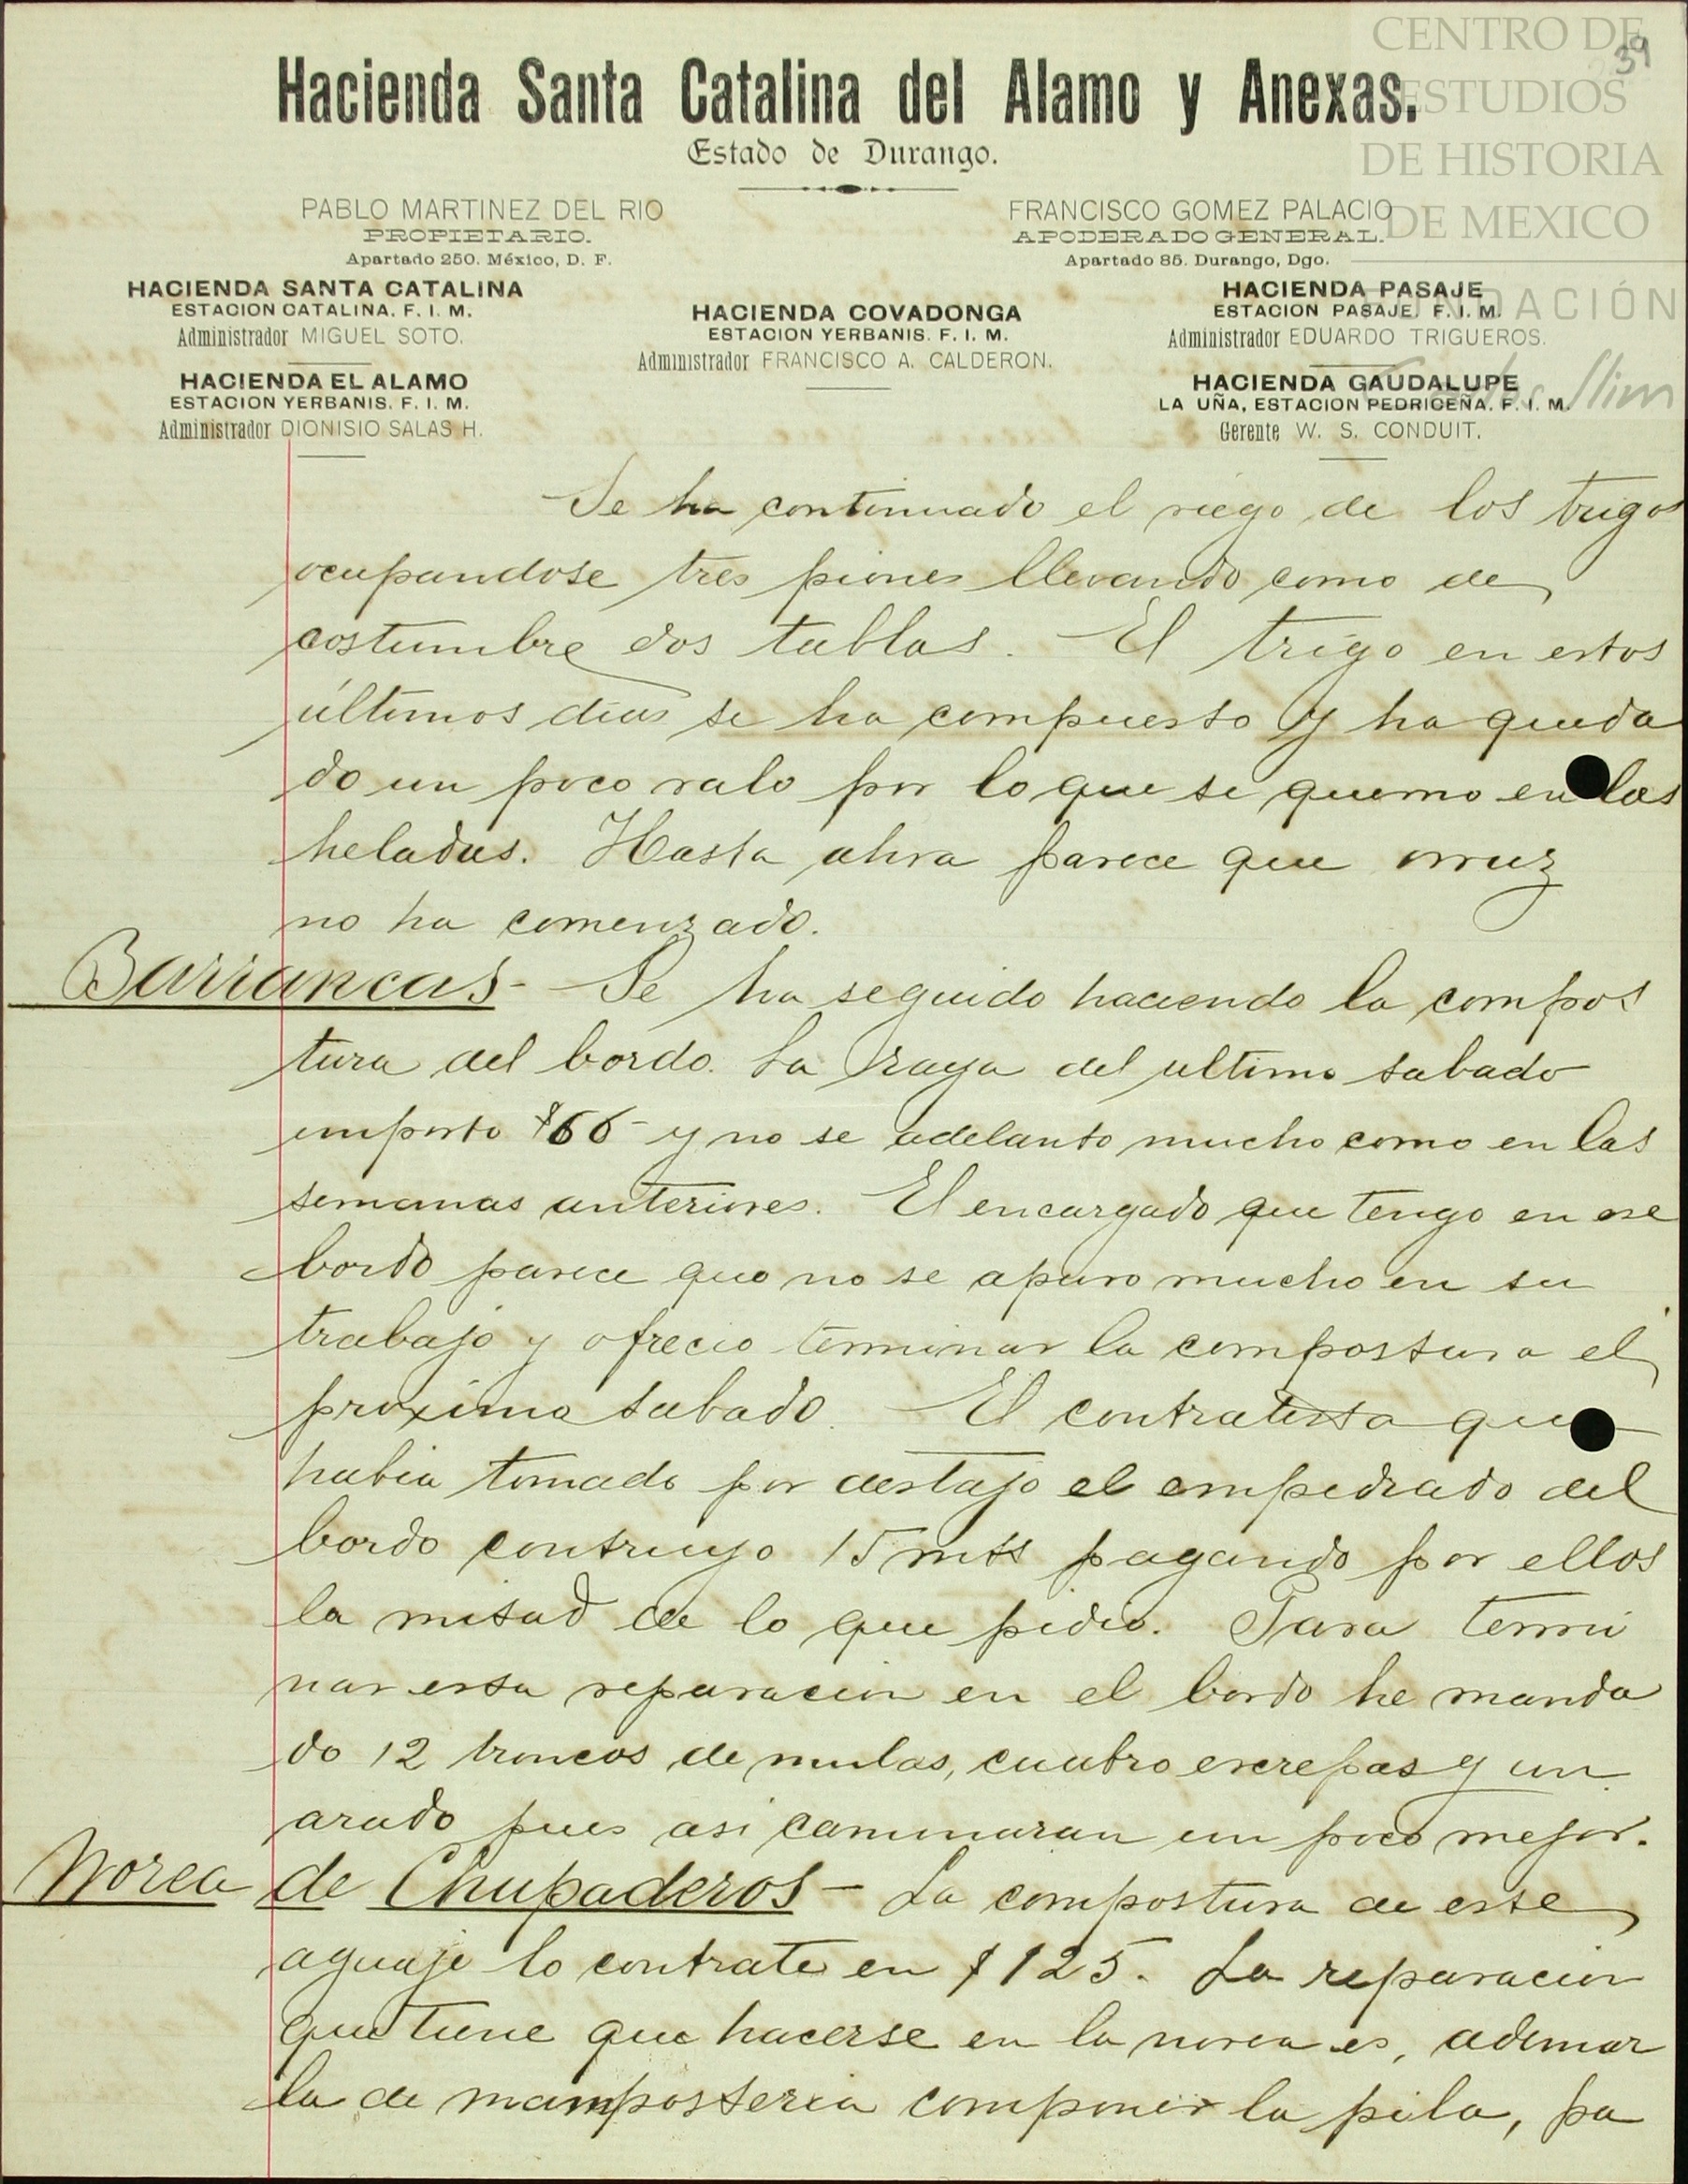 CENTRO DE
ESTUDIOS
DE HISTORIA
DE MEXICO
FUNDACIÓN
Carlos Slim
39
Hacienda Santa Catalina del Alamo y Anexas.
Estado de Durango.
PABLO MARTINEZ DEL RIO
PROPIETARIO.
Apartado 250. México, D. F.
FRANCISCO GOMEZ PALACIO
APODERADO GENERAL.
Apartado 85. Durango, Dgo.
HACIENDA SANTA CATALINA
ESTACION CATALINA. F. I. M.
Administrador MIGUEL SOTO.
HACIENDA EL ALAMO
ESTACION YERBANIS. F. I. M.
Administrador DIONISIO SALAS H.
HACIENDA COVADONGA
ESTACION YERBANIS. F. I. M.
Administrador FRANCISCO A. CALDERON.
HACIENDA PASAJE
ESTACION PASAJE. F. I. M.
Administrador EDUARDO TRIGUEROS.
HACIENDA GAUDALUPE
LA UÑA, ESTACION PEDRICEÑA. F. I. M.
Gerente W. S. CONDUIT.
Se ha continuado el riego de los trigos
ocupandose tres piones llevando como de
costumbre dos tablas. El trigo en estos
últimos dias se ha compuesto y ha queda
do un poco ralo por lo que se quemo en las
heladas. Hasta ahora parece que
no ha comenzado.
Barrancas- Se ha seguido haciendo la compos
tura del bordo. La raya del ultimo sabado
importo $66- y no se adelanto mucho como en las
semanas anteriores. El encargado que tengo en ese
bordo parece que no se apuro mucho en su
trabajo y ofrecio terminar la compostura el
proximo sabado. El contratista que
habia tomado por destajo el empedrado del
bordo contruyo 15 mts pagando por ellos
la mitad de lo que pidio. Para termi
nar esta reparacion en el bordo he manda
do 12 troncos de mulas, cuatro escrepas y un
arado pues asi caminaran un poco mejor.
Norea de Chupaderos- La compostura de este
aguaje lo contrate en $125. La reparacion
que tiene que hacerse en la norea es, ademar
la de mamposteria componer la pila, pa